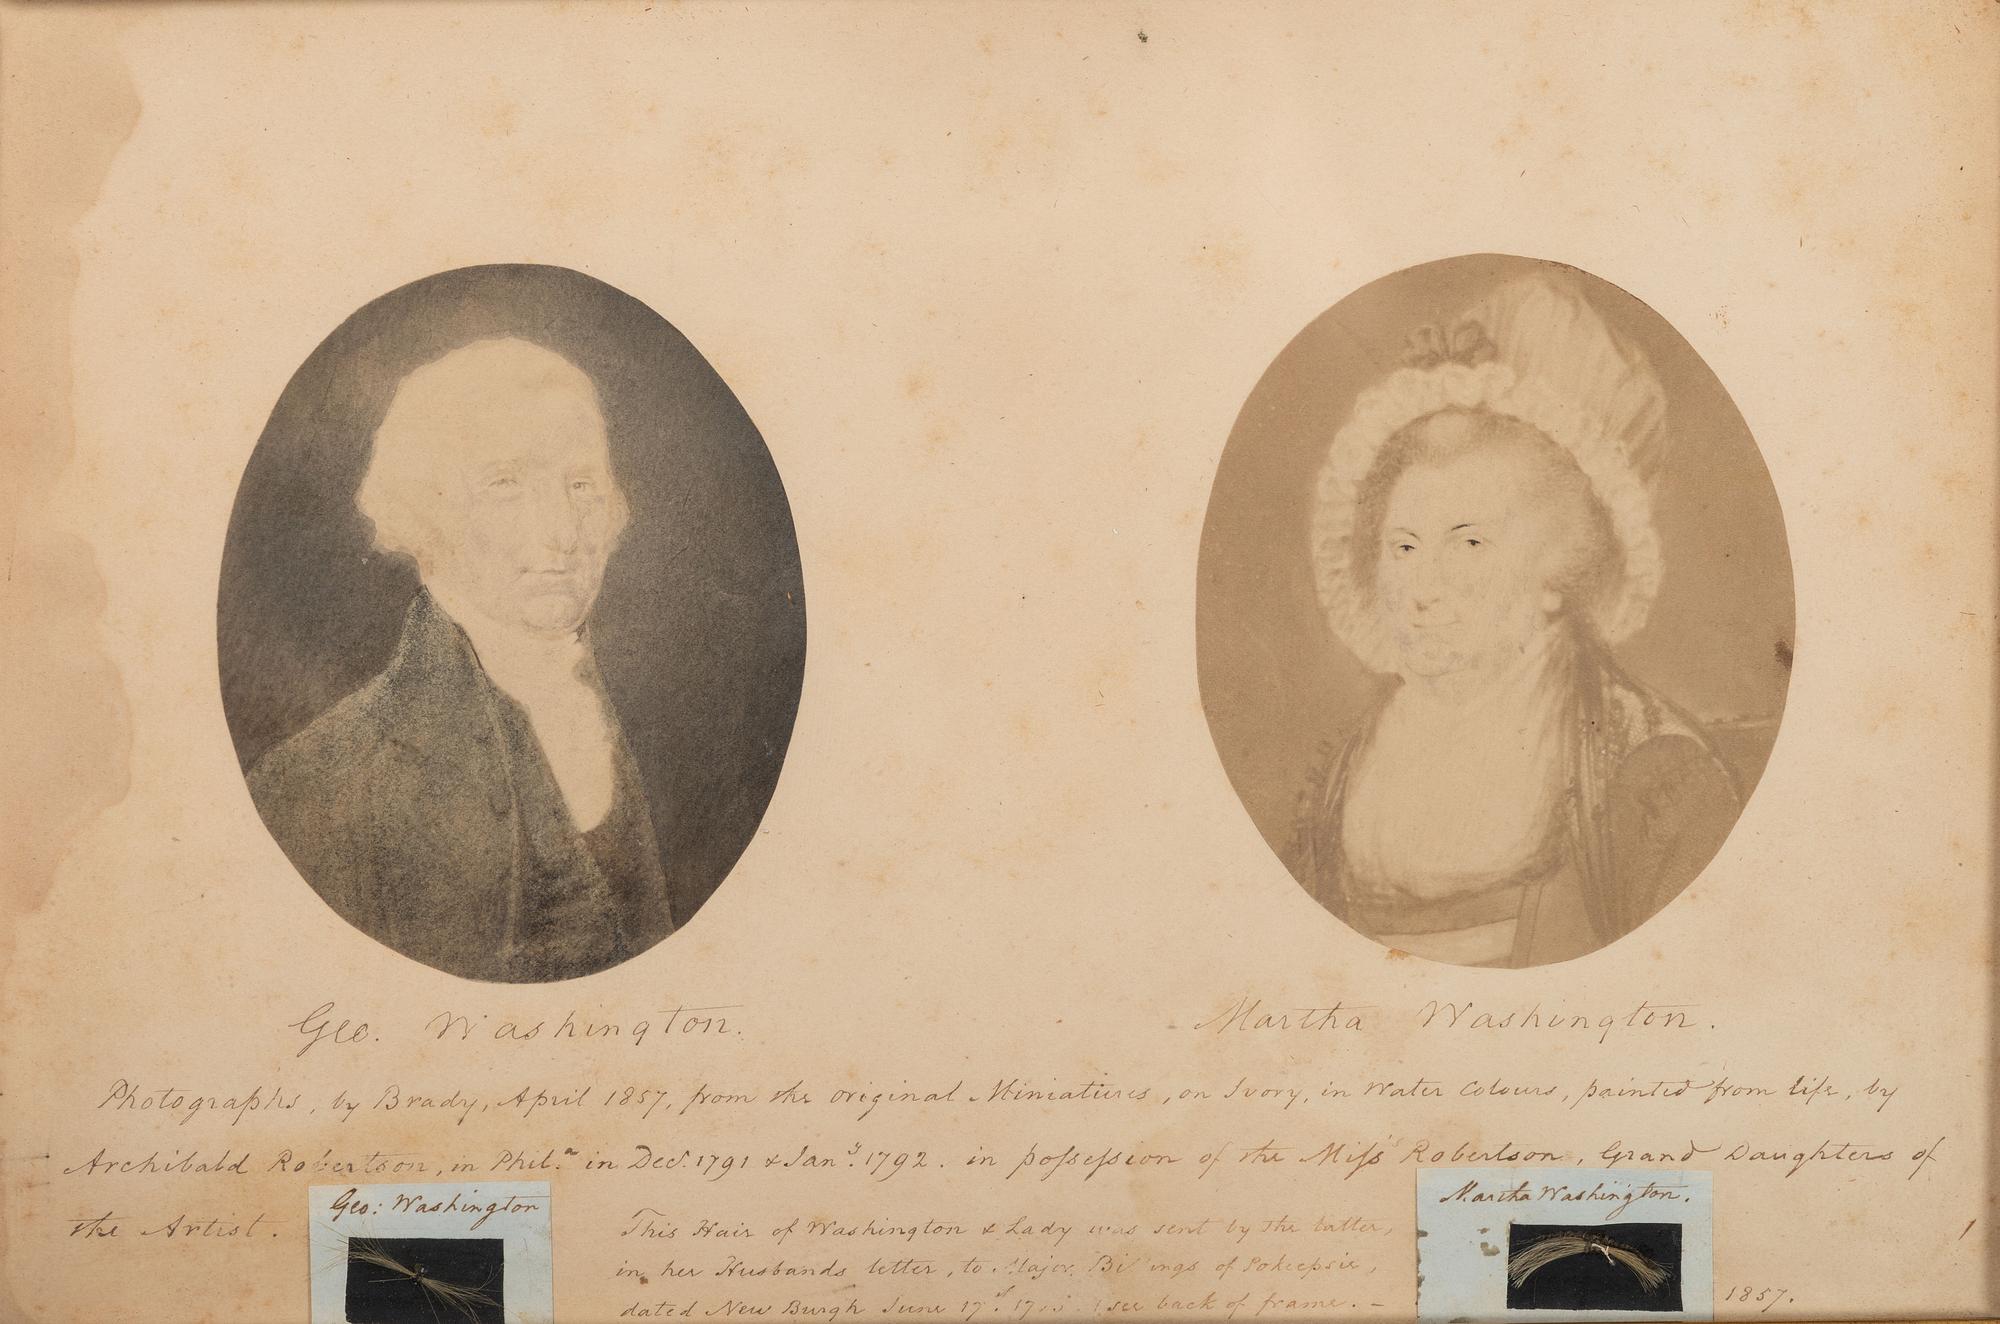 Geo. Washington.
Martha Washington.
Photographs, by Brady, April 1857, from the original Miniatures, on Ivory, in Water Colours, painted from life, by
Archibald Robertson, in Phil.a in Dec.r 1791 & Jan.y 1792. in possession of the Miss Robertson, Grand Daughters of
the Artist.
Geo: Washington
This Hair of Washington & Lady was sent by the latter,
in her Husbands letter, to Major Billings of Pokeepsie,
dated New Burgh June 17.th see back of frame. –
Martha Washington.
1857.